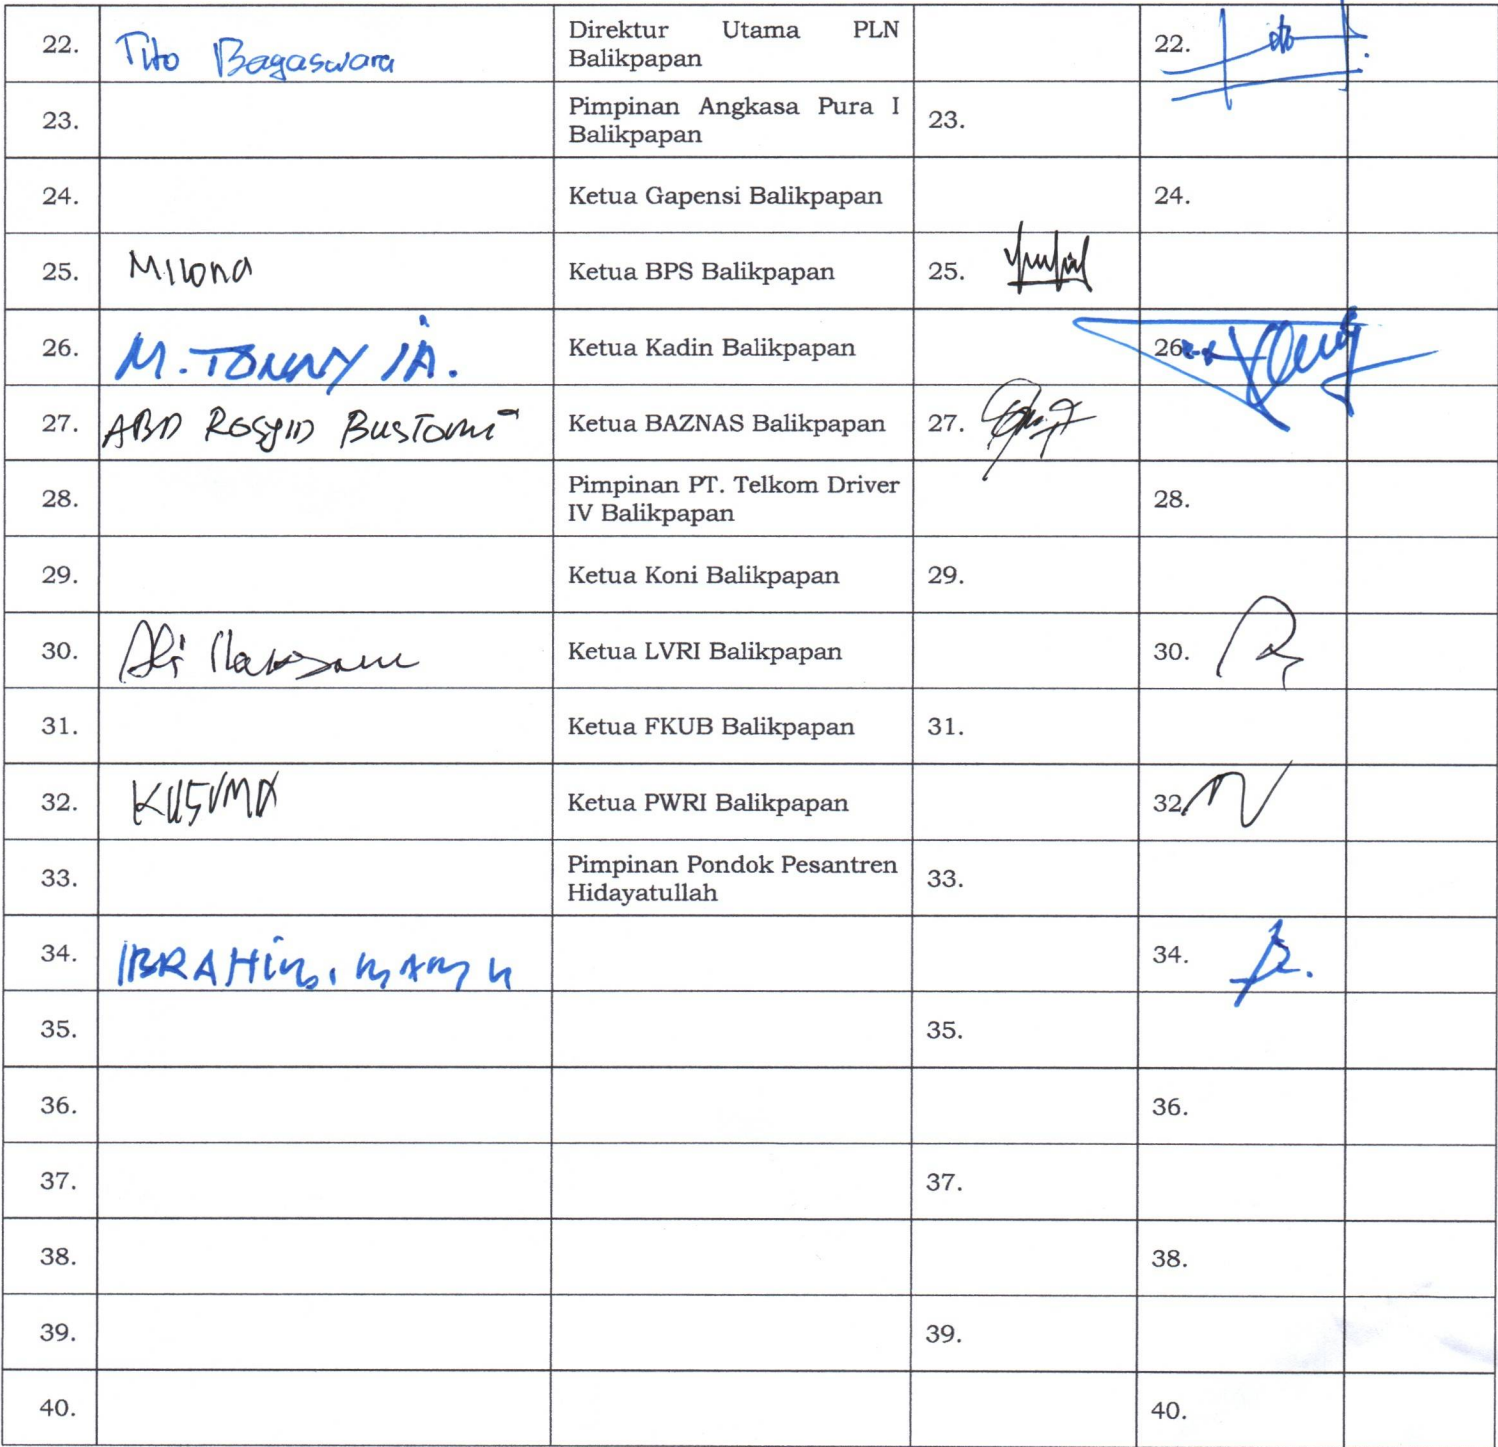 22. Tito Bagaswara Direktur Utama PLN Balikpapan 22.
23. Pimpinan Angkasa Pura I Balikpapan 23.
24. Ketua Gapensi Balikpapan 24.
25. Milona Ketua BPS Balikpapan 25.
26. M. TONNY Ketua Kadin Balikpapan 26.
27. ABD ROSYID BUSTOMI Ketua BAZNAS Balikpapan 27.
28. Pimpinan PT. Telkom Driver IV Balikpapan 28.
29. Ketua Koni Balikpapan 29.
30. Ali Ketua LVRI Balikpapan 30.
31. Ketua FKUB Balikpapan 31.
32. KUSUMA Ketua PWRI Balikpapan 32
33. Pimpinan Pondok Pesantren Hidayatullah 33.
34. IBRAHIM. 34.
35. 35.
36. 36.
37. 37.
38. 38.
39. 39.
40. 40.